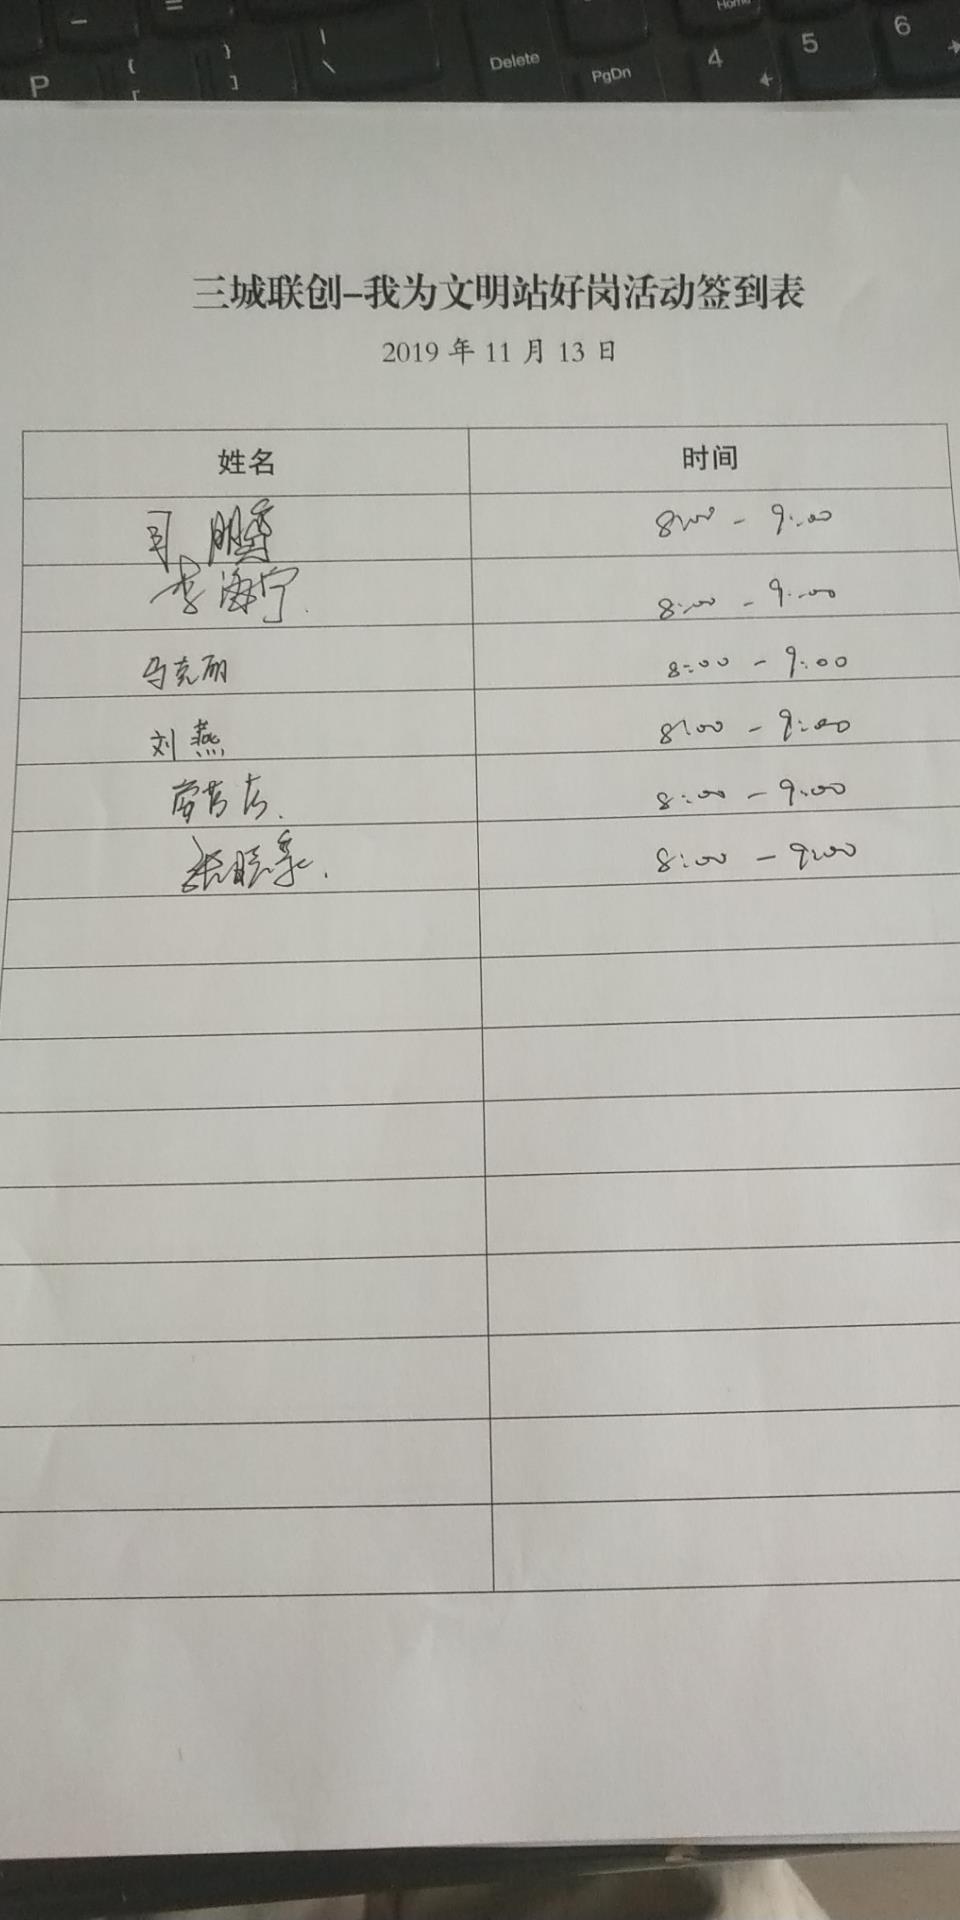 - =
P { [ } ] | \ Delete PgDn Home 4 5 6
三城联创-我为文明站好岗活动签到表
2019 年 11 月 13 日
姓名 时间
司鹏 8:00 - 9:00
李海宁. 8:00 - 9:00
马克丽 8:00 - 9:00
刘燕 8:00 - 9:00
8:00 - 9:00
张晓 8:00 - 9:00